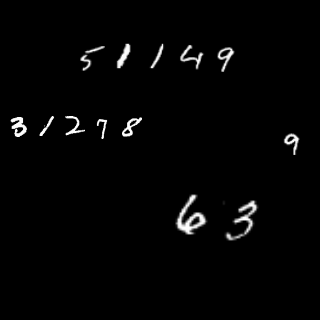 51149
31278
9
63